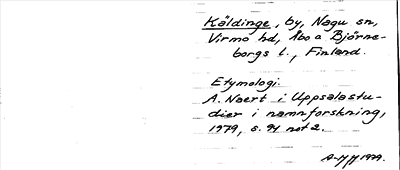 Käldinge, by, Nagu sn,
Virmo hd, Åbo o Björne-
borgs l., Finland.
Etymologi.
A. Naert i Uppsalastu-
dier i namnforskning,
1979, s. 94 not 2.
1979.